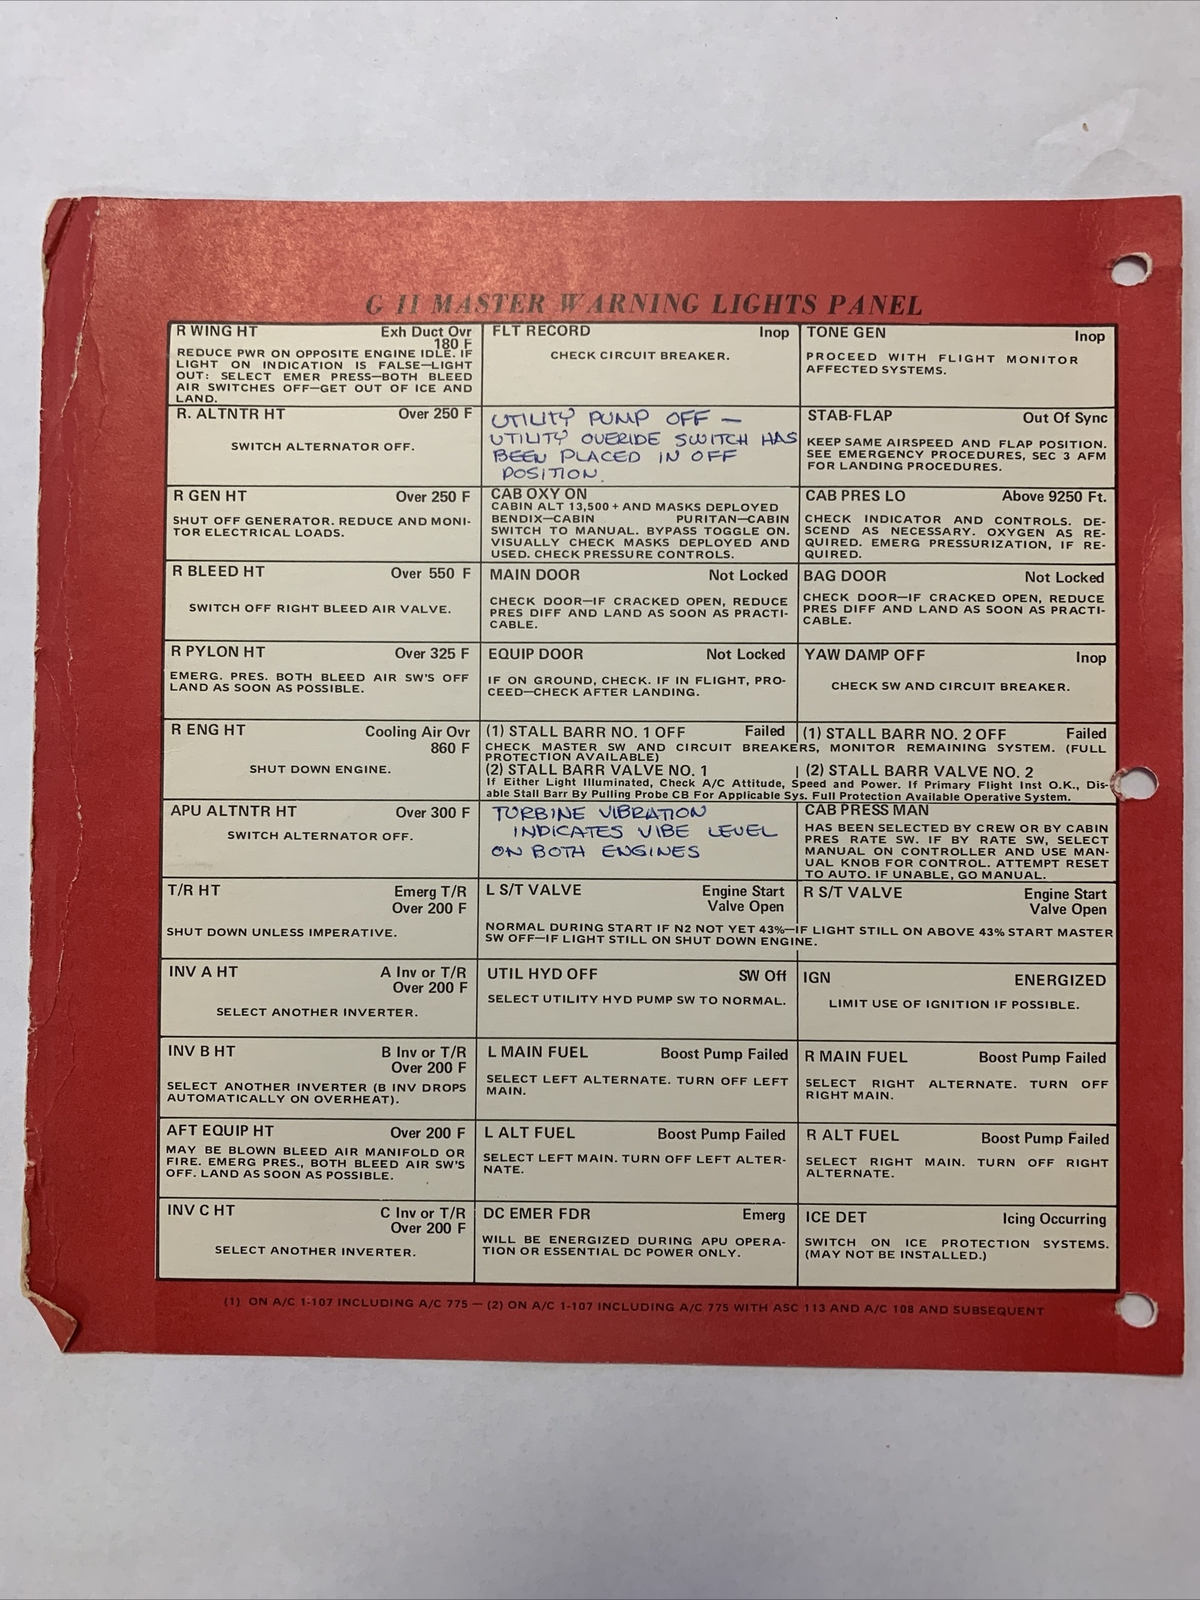 G II MASTER WARNING LIGHTS PANEL
R WING HT Exh Duct Ovr
180 F
REDUCE PWR ON OPPOSITE ENGINE IDLE. IF
LIGHT ON INDICATION IS FALSE—LIGHT
OUT: SELECT EMER PRESS—BOTH BLEED
AIR SWITCHES OFF—GET OUT OF ICE AND
LAND.
FLT RECORD Inop
CHECK CIRCUIT BREAKER.
TONE GEN Inop
PROCEED WITH FLIGHT MONITOR
AFFECTED SYSTEMS.
R. ALTNTR HT Over 250 F
SWITCH ALTERNATOR OFF.
UTILITY PUMP OFF —
UTILITY OVERIDE SWITCH HAS
BEEN PLACED IN OFF
POSITION.
STAB-FLAP Out Of Sync
KEEP SAME AIRSPEED AND FLAP POSITION.
SEE EMERGENCY PROCEDURES, SEC 3 AFM
FOR LANDING PROCEDURES.
R GEN HT Over 250 F
SHUT OFF GENERATOR. REDUCE AND MONI-
TOR ELECTRICAL LOADS.
CAB OXY ON
CABIN ALT 13,500 + AND MASKS DEPLOYED
BENDIX—CABIN PURITAN—CABIN
SWITCH TO MANUAL. BYPASS TOGGLE ON.
VISUALLY CHECK MASKS DEPLOYED AND
USED. CHECK PRESSURE CONTROLS.
CAB PRES LO Above 9250 Ft.
CHECK INDICATOR AND CONTROLS. DE-
SCEND AS NECESSARY. OXYGEN AS RE-
QUIRED. EMERG PRESSURIZATION, IF RE-
QUIRED.
R BLEED HT Over 550 F
SWITCH OFF RIGHT BLEED AIR VALVE.
MAIN DOOR Not Locked
CHECK DOOR—IF CRACKED OPEN, REDUCE
PRES DIFF AND LAND AS SOON AS PRACTI-
CABLE.
BAG DOOR Not Locked
CHECK DOOR—IF CRACKED OPEN, REDUCE
PRES DIFF AND LAND AS SOON AS PRACTI-
CABLE.
R PYLON HT Over 325 F
EMERG. PRES. BOTH BLEED AIR SW'S OFF
LAND AS SOON AS POSSIBLE.
EQUIP DOOR Not Locked
IF ON GROUND, CHECK. IF IN FLIGHT, PRO-
CEED—CHECK AFTER LANDING.
YAW DAMP OFF Inop
CHECK SW AND CIRCUIT BREAKER.
R ENG HT Cooling Air Ovr
860 F
SHUT DOWN ENGINE.
(1) STALL BARR NO. 1 OFF Failed (1) STALL BARR NO. 2 OFF Failed
CHECK MASTER SW AND CIRCUIT BREAKERS, MONITOR REMAINING SYSTEM. (FULL
PROTECTION AVAILABLE)
(2) STALL BARR VALVE NO. 1 (2) STALL BARR VALVE NO. 2
If Either Light Illuminated, Check A/C Attitude, Speed and Power. If Primary Flight Inst O.K., Dis-
able Stall Barr By Pulling Probe CB For Applicable Sys. Full Protection Available Operative System.
APU ALTNTR HT Over 300 F
SWITCH ALTERNATOR OFF.
TURBINE VIBRATION
INDICATES VIBE LEVEL
ON BOTH ENGINES
CAB PRESS MAN
HAS BEEN SELECTED BY CREW OR BY CABIN
PRES RATE SW. IF BY RATE SW, SELECT
MANUAL ON CONTROLLER AND USE MAN-
UAL KNOB FOR CONTROL. ATTEMPT RESET
TO AUTO. IF UNABLE, GO MANUAL.
T/R HT Emerg T/R
Over 200 F
SHUT DOWN UNLESS IMPERATIVE.
L S/T VALVE Engine Start
Valve Open
R S/T VALVE Engine Start
Valve Open
NORMAL DURING START IF N2 NOT YET 43%—IF LIGHT STILL ON ABOVE 43% START MASTER
SW OFF—IF LIGHT STILL ON SHUT DOWN ENGINE.
INV A HT A Inv or T/R
Over 200 F
SELECT ANOTHER INVERTER.
UTIL HYD OFF SW Off
SELECT UTILITY HYD PUMP SW TO NORMAL.
IGN ENERGIZED
LIMIT USE OF IGNITION IF POSSIBLE.
INV B HT B Inv or T/R
Over 200 F
SELECT ANOTHER INVERTER (B INV DROPS
AUTOMATICALLY ON OVERHEAT).
L MAIN FUEL Boost Pump Failed
SELECT LEFT ALTERNATE. TURN OFF LEFT
MAIN.
R MAIN FUEL Boost Pump Failed
SELECT RIGHT ALTERNATE. TURN OFF
RIGHT MAIN.
AFT EQUIP HT Over 200 F
MAY BE BLOWN BLEED AIR MANIFOLD OR
FIRE. EMERG PRES., BOTH BLEED AIR SW'S
OFF. LAND AS SOON AS POSSIBLE.
L ALT FUEL Boost Pump Failed
SELECT LEFT MAIN. TURN OFF LEFT ALTER-
NATE.
R ALT FUEL Boost Pump Failed
SELECT RIGHT MAIN. TURN OFF RIGHT
ALTERNATE.
INV C HT C Inv or T/R
Over 200 F
SELECT ANOTHER INVERTER.
DC EMER FDR Emerg
WILL BE ENERGIZED DURING APU OPERA-
TION OR ESSENTIAL DC POWER ONLY.
ICE DET Icing Occurring
SWITCH ON ICE PROTECTION SYSTEMS.
(MAY NOT BE INSTALLED.)
(1) ON A/C 1-107 INCLUDING A/C 775 — (2) ON A/C 1-107 INCLUDING A/C 775 WITH ASC 113 AND A/C 108 AND SUBSEQUENT